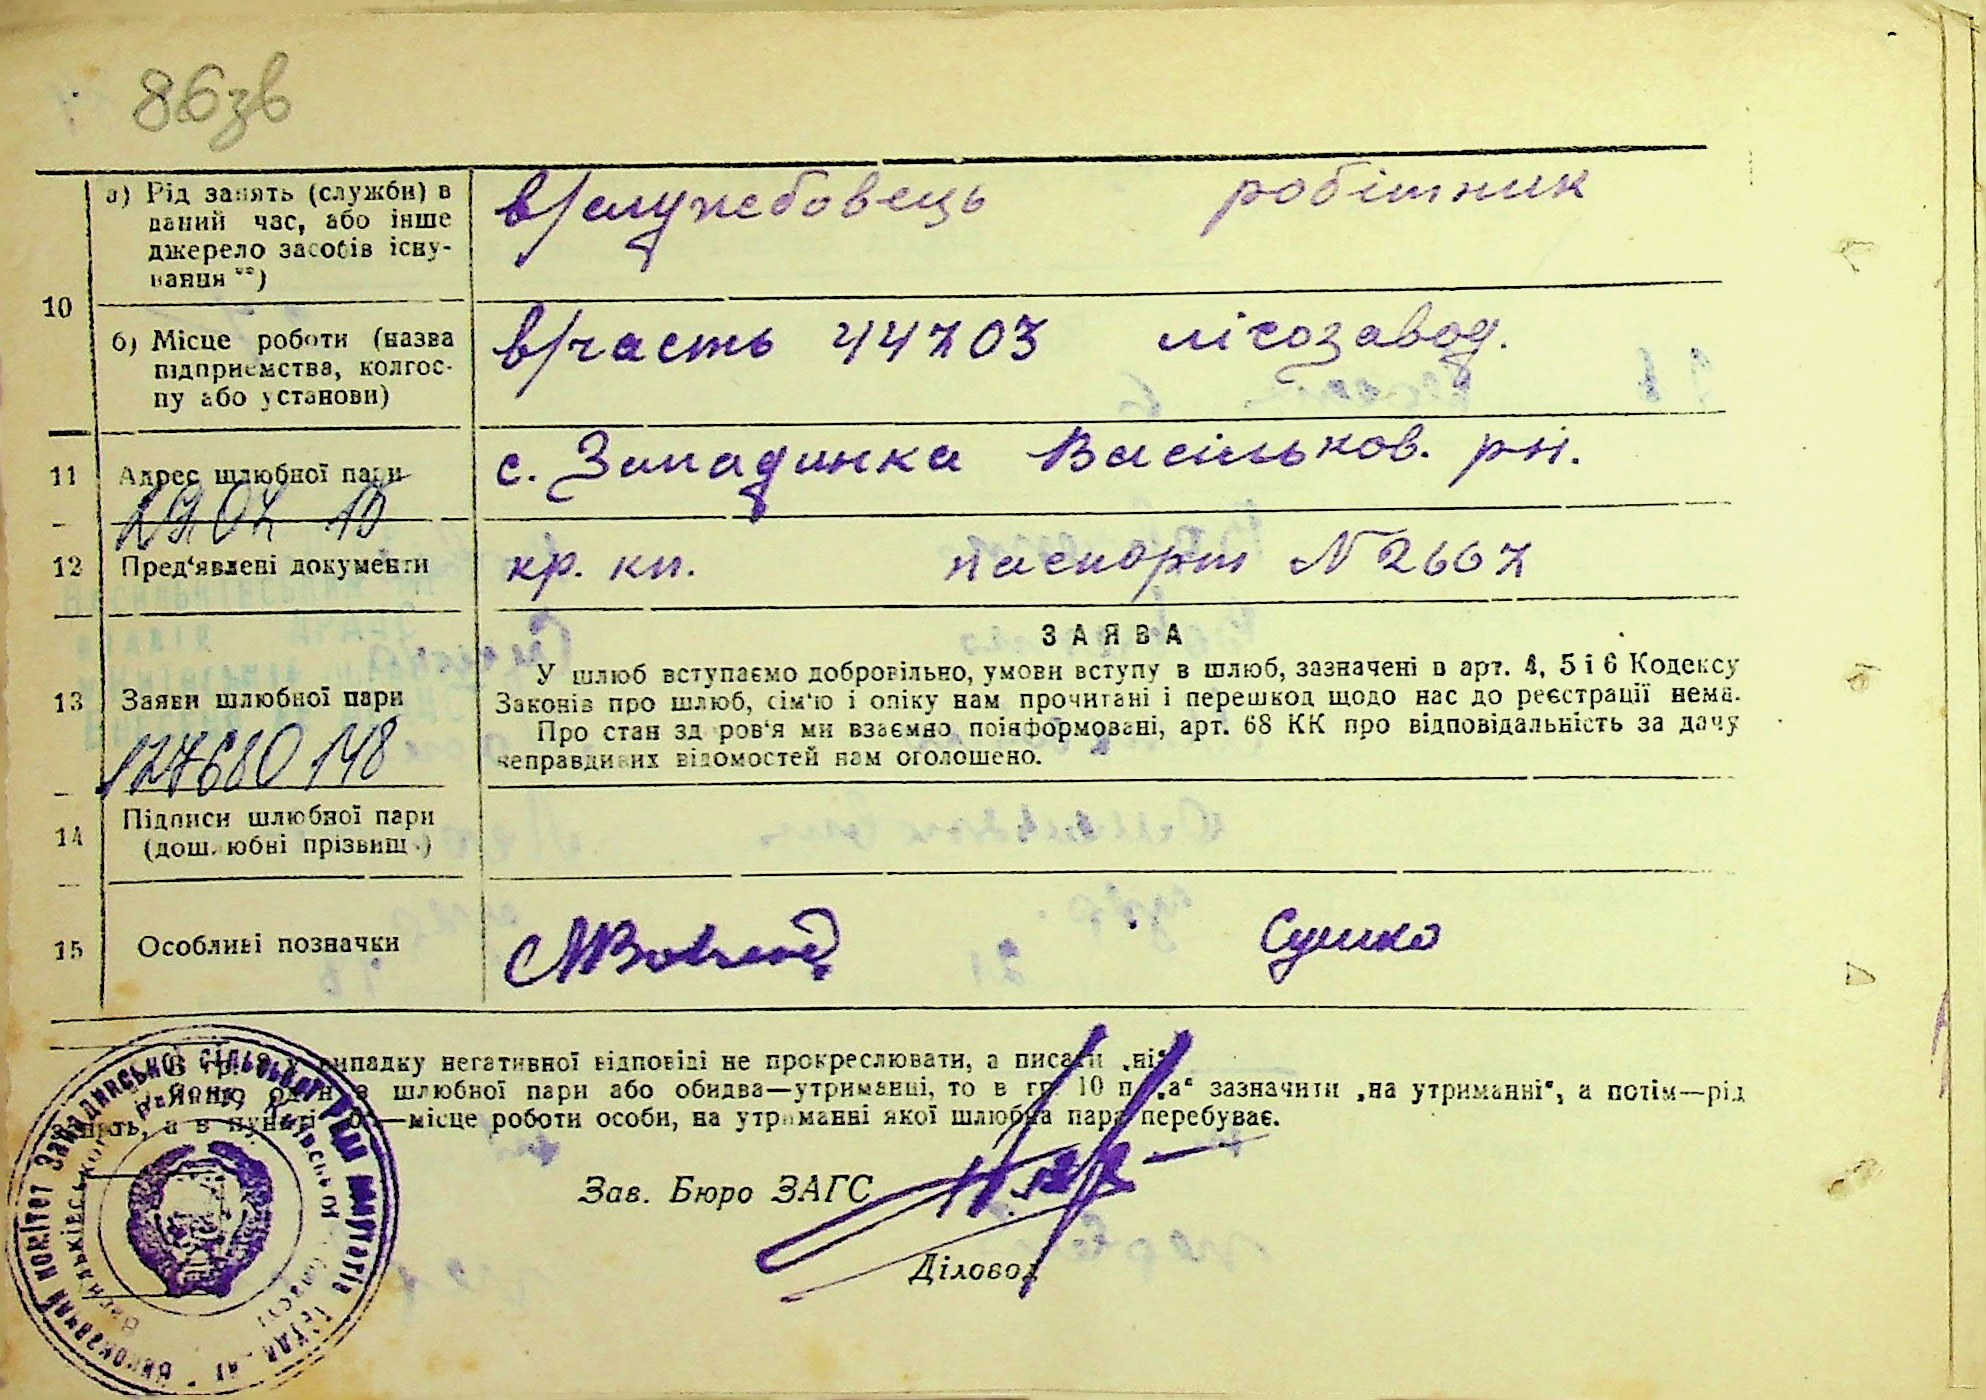 86зв
10
а) Рід занять (служби) в
даний час, або інше
джерело засобів існу-
вання **)
в/службовець робітник
б) Місце роботи (назва
підприємства, колгос-
пу або установи)
в/часть 44703 лісозавод.
11 Адрес шлюбної пари
с. Западинка Васильков. рн.
12 Пред'явлені документи
кр. кп. паспорт N 2667
13 Заяви шлюбної пари
ЗАЯВА
У шлюб вступаємо добровільно, умови вступу в шлюб, зазначені в арт. 4, 5 і 6 Кодексу
Законів про шлюб, сім'ю і опіку нам прочитані і перешкод щодо нас до реєстрації нема.
Про стан здоров'я ми взаємно поінформовані, арт. 68 КК про відповідальність за дачу
неправдивих відомостей нам оголошено.
14 Підписи шлюбної пари
(дошлюбні прізвища)
15 Особливі позначки
Сушко
випадку негативної відповіді не прокреслювати, а писати „ні"
шлюбної пари або обидва—утриманці, то в гр. 10 п. „а" зазначити „на утриманні", а потім—рід
занять, а в пункті „б"—місце роботи особи, на утриманні якої шлюбна пара перебуває.
Зав. Бюро ЗАГС
Діловод
Виконавчий комітет Западинської сільської ради депутатів трудящих
Васильківського району Київської області